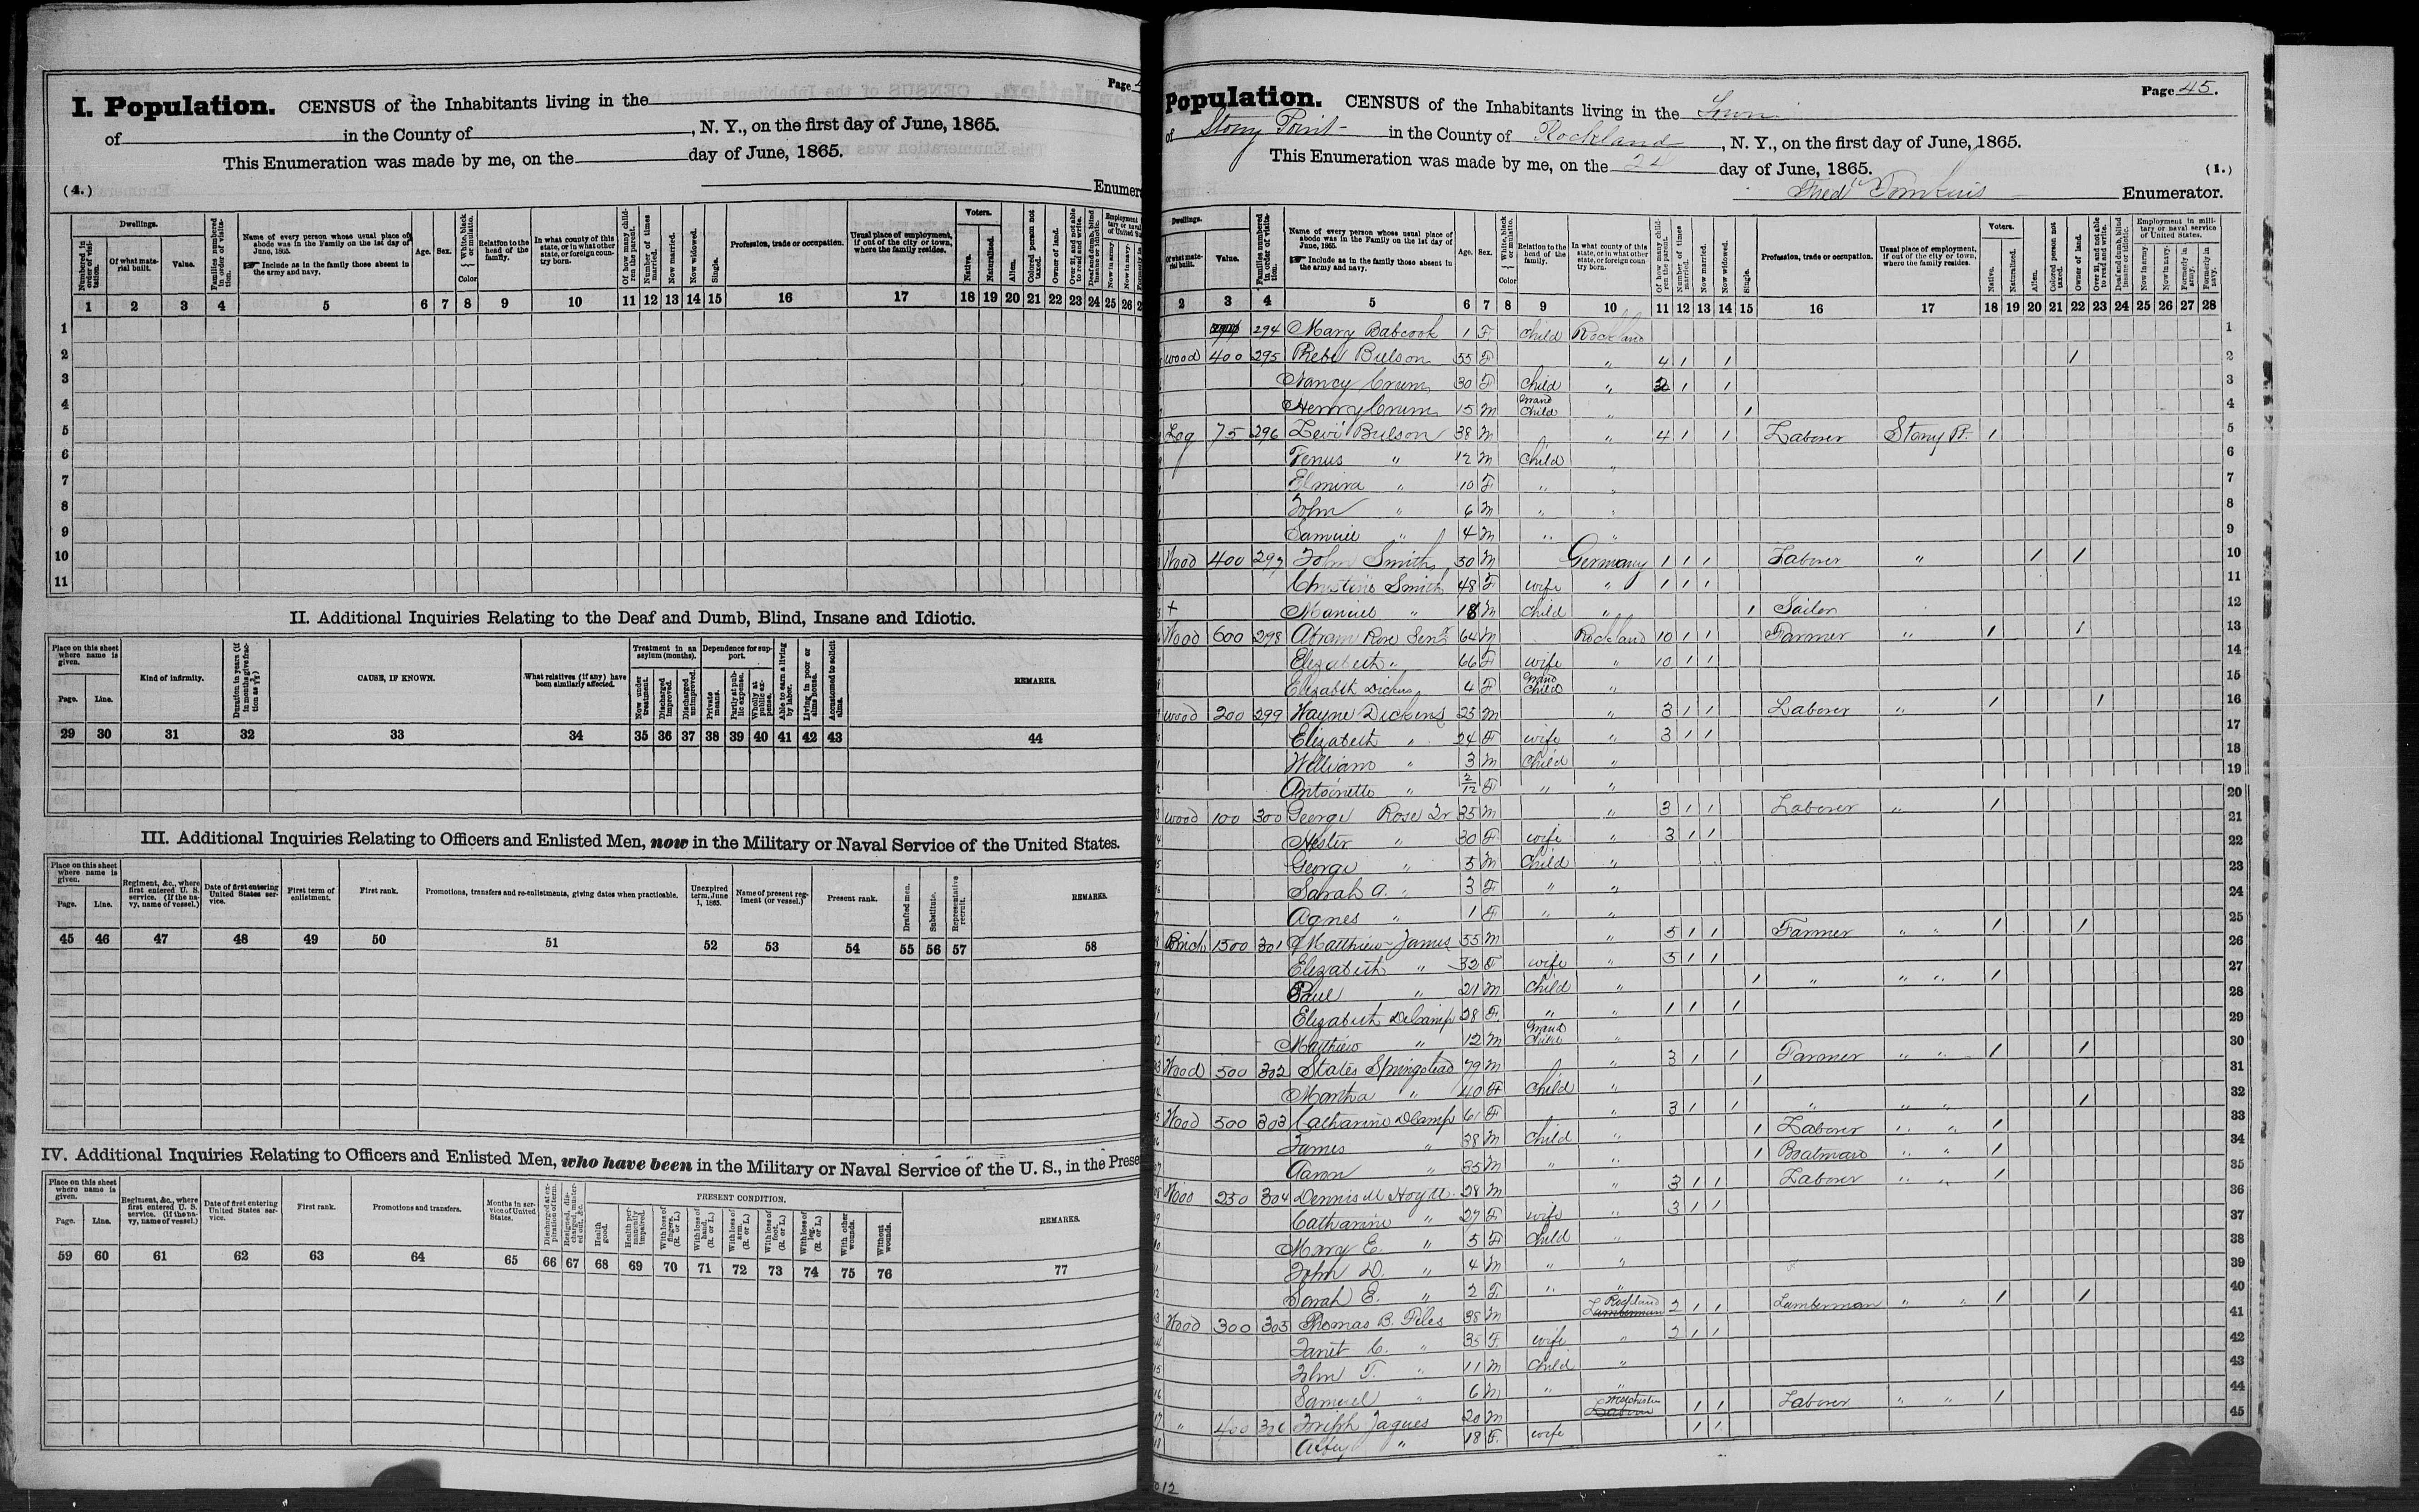 Page 4
I. Population. CENSUS of the Inhabitants living in the
of in the County of , N. Y., on the first day of June, 1865.
This Enumeration was made by me, on the day of June, 1865.
(4.) Enumer
Dwellings.
Numbered in order of visitation.
Of what material built.
Value.
Families numbered in order of visitation.
Name of every person whose usual place of abode was in the Family on the 1st day of June, 1865.
Include as in the family those absent in the army and navy.
Age.
Sex.
White, black or mulatto.
Color
Relation to the head of the family.
In what county of this state, or in what other state, or foreign country born.
Of how many children the parent.
Number of times married.
Now married.
Now widowed.
Single.
Profession, trade or occupation.
Usual place of employment, if out of the city or town, where the family resides.
Voters.
Native.
Naturalized.
Alien.
Colored person not taxed.
Owner of land.
Over 21, and not able to read and write.
Deaf and dumb, blind insane or idiotic.
Now in army.
Now in navy.
1 2 3 4 5 6 7 8 9 10 11 12 13 14 15 16 17 18 19 20 21 22 23 24 25 26 2
1
2
3
4
5
6
7
8
9
10
11
II. Additional Inquiries Relating to the Deaf and Dumb, Blind, Insane and Idiotic.
Place on this sheet where name is given.
Page.
Line.
Kind of infirmity.
Duration in years (if in months give fraction as 7/12)
CAUSE, IF KNOWN.
What relatives (if any) have been similarly affected.
Treatment in an asylum (months).
Now under treatment.
Discharged improved.
Discharged unimproved.
Dependence for support.
Private means.
Partly at public expense.
Wholly at public expense.
Able to earn a living by labor.
Living in poor or alms house.
Accustomed to solicit alms.
REMARKS.
29 30 31 32 33 34 35 36 37 38 39 40 41 42 43 44
III. Additional Inquiries Relating to Officers and Enlisted Men, now in the Military or Naval Service of the United States.
Place on this sheet where name is given.
Page.
Line.
Regiment, &c., where first entered U. S. service. (If the navy, name of vessel.)
Date of first entering United States service.
First term of enlistment.
First rank.
Promotions, transfers and re-enlistments, giving dates when practicable.
Unexpired term, June 1, 1865.
Name of present regiment (or vessel.)
Present rank.
Drafted men.
Substitute.
Representative recruit.
REMARKS.
45 46 47 48 49 50 51 52 53 54 55 56 57 58
IV. Additional Inquiries Relating to Officers and Enlisted Men, who have been in the Military or Naval Service of the U. S., in the Prese
Place on this sheet where name is given.
Page.
Line.
Regiment, &c., where first entered U. S. service. (If the navy, name of vessel.)
Date of first entering United States service.
First rank.
Promotions and transfers.
Months in service of United States.
Discharged at expiration of term.
Resigned, discharged, mustered out, &c.
PRESENT CONDITION.
Health good.
Health permanently impaired.
With loss of fingers. (R. or L.)
With loss of hand. (R. or L.)
With loss of arm. (R. or L.)
With loss of foot. (R. or L.)
With loss of leg. (R. or L.)
With other wounds.
Without wounds.
REMARKS.
59 60 61 62 63 64 65 66 67 68 69 70 71 72 73 74 75 76 77
Page 45.
Population. CENSUS of the Inhabitants living in the Town
of Stony Point in the County of Rockland, N. Y., on the first day of June, 1865.
This Enumeration was made by me, on the 24 day of June, 1865.
(1.)
Fred Tomkins Enumerator.
Dwellings.
Of what material built.
Value.
Families numbered in order of visitation.
Name of every person whose usual place of abode was in the Family on the 1st day of June, 1865.
Include as in the family those absent in the army and navy.
Age.
Sex.
White, black or mulatto.
Color
Relation to the head of the family.
In what county of this state, or in what other state, or foreign country born.
Of how many children the parent.
Number of times married.
Now married.
Now widowed.
Single.
Profession, trade or occupation.
Usual place of employment, if out of the city or town, where the family resides.
Voters.
Native.
Naturalized.
Alien.
Colored person not taxed.
Owner of land.
Over 21, and not able to read and write.
Deaf and dumb, blind insane or idiotic.
Employment in military or naval service of United States.
Now in army.
Now in navy.
Formerly in army.
Formerly in navy.
2 3 4 5 6 7 8 9 10 11 12 13 14 15 16 17 18 19 20 21 22 23 24 25 26 27 28
294 Mary Babcock 1 F Child Rockland 1
wood 400 295 Phebe Bulson 55 F " 4 1 1 1 2
Nancy Crum 30 F Child " 2 1 1 3
Henry Crum 15 M Grand Child " 1 4
Log 75 296 Levi Bulson 38 M " 4 1 1 Laborer Stony Pt. 1 5
Tenus " 12 M Child " 6
Elmira " 10 F " " 7
John " 6 M " " 8
Samuel " 4 M " " 9
Wood 400 297 John Smith 50 M Germany 1 1 1 Laborer " 1 1 10
Christine Smith 48 F wife " 1 1 1 11
+ Manuel " 18 M Child " 1 Sailor 12
Wood 600 298 Abram Rose Senr 64 M Rockland 10 1 1 Farmer " 1 1 13
Elizabeth " 66 F wife " 10 1 1 14
Elizabeth Dickens 4 F Grand Child " 15
wood 200 299 Wayne Dickens 25 M " 3 1 1 Laborer " 1 1 16
Elizabeth " 24 F wife " 3 1 1 17
William " 3 M Child " 18
Antoinette " 2/12 F " " 19
wood 100 300 George Rose Jr 35 M " 3 1 1 Laborer " 1 20
Hester " 30 F wife " 3 1 1 21
George " 5 M Child " 22
Sarah A. " 3 F " " 23
Agnes " 1 F " " 24
Brick 1500 301 Matthiew James 55 M " 5 1 1 Farmer " " 1 1 25
Elizabeth " 32 F wife " 5 1 1 26
Paul " 21 M Child " 1 " " " 1 27
Elizabeth DeCamp 28 F. " " 1 1 1 28
Matthiew " 12 M Grand Child " 29
Wood 500 302 States Springstead 79 M " 3 1 1 Farmer " " 1 1 30
Martha " 40 F Child " 1 31
Wood 500 303 Catharine DCamp 61 F " 3 1 1 " " " 1 32
James " 38 M Child " 1 Laborer " " 1 33
Aaron " 35 M " " 1 Boatman " " 1 34
Wood 250 304 Dennis M Hoyt 28 M " 3 1 1 Laborer " " 1 35
Catharine " 27 F wife " 3 1 1 36
Mary E. " 5 F Child " 37
John D. " 4 M " " 38
Sarah E. " 2 F " " 39
Wood 300 305 Thomas B. Files 38 M Rockland Lumberman 2 1 1 Lumberman " " 1 1 40
Janet C. " 35 F wife " 2 1 1 41
John T. " 11 M Child " 42
Samuel " 6 M " " 43
" 400 306 Joseph Jaques 20 M Westchester 1 1 Laborer " " 1 44
Abby " 18 F. wife 1 1 45
12